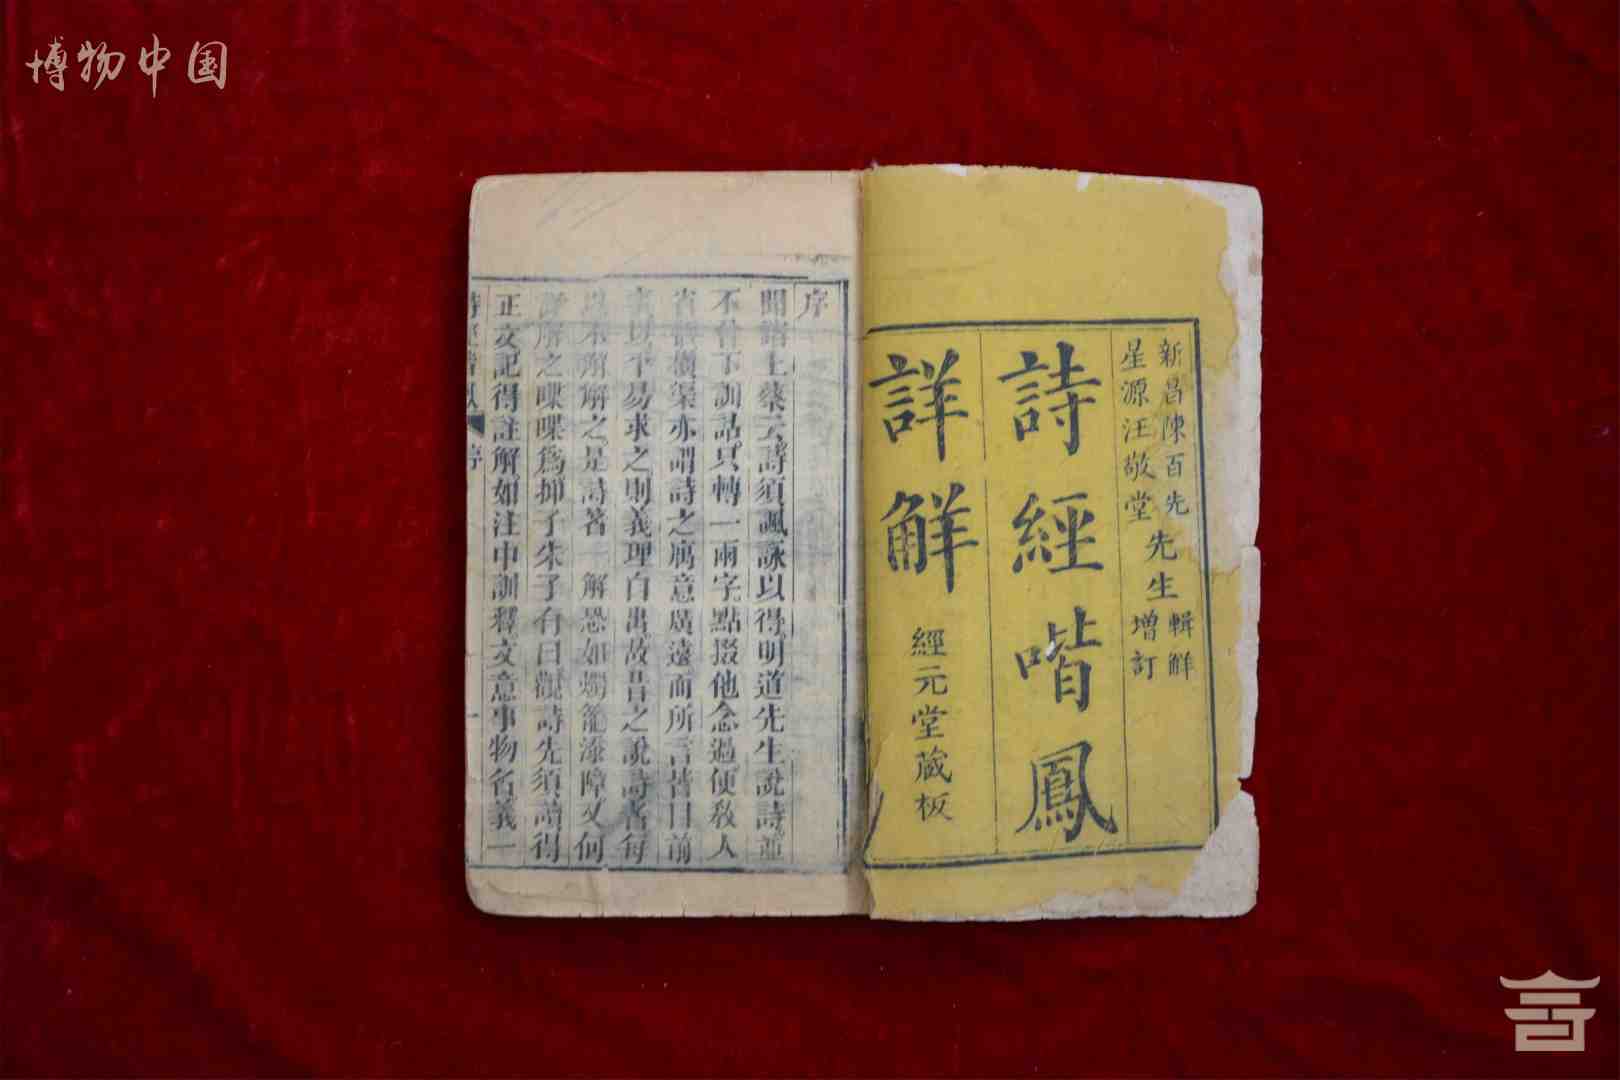 博物中国
新昌陳百先
星源汪敬堂
先生
輯解
增訂
詩經喈鳳
詳解
經元堂藏板
序
聞諸上蔡云詩須諷詠以得明道先生說詩並
不曾下訓詁只轉一兩字點掇他念過便敎人
省悟橫渠亦謂詩之寓意廣遠而所言皆目前
事以平易求之則義理自出故昔之說詩者每
以不解解之是詩著一解恐如燭籠添障又何
詳解之喋喋爲抑子朱子有曰觀詩先須讀得
正文記得註解如注中訓釋文意事物名義一
序
一